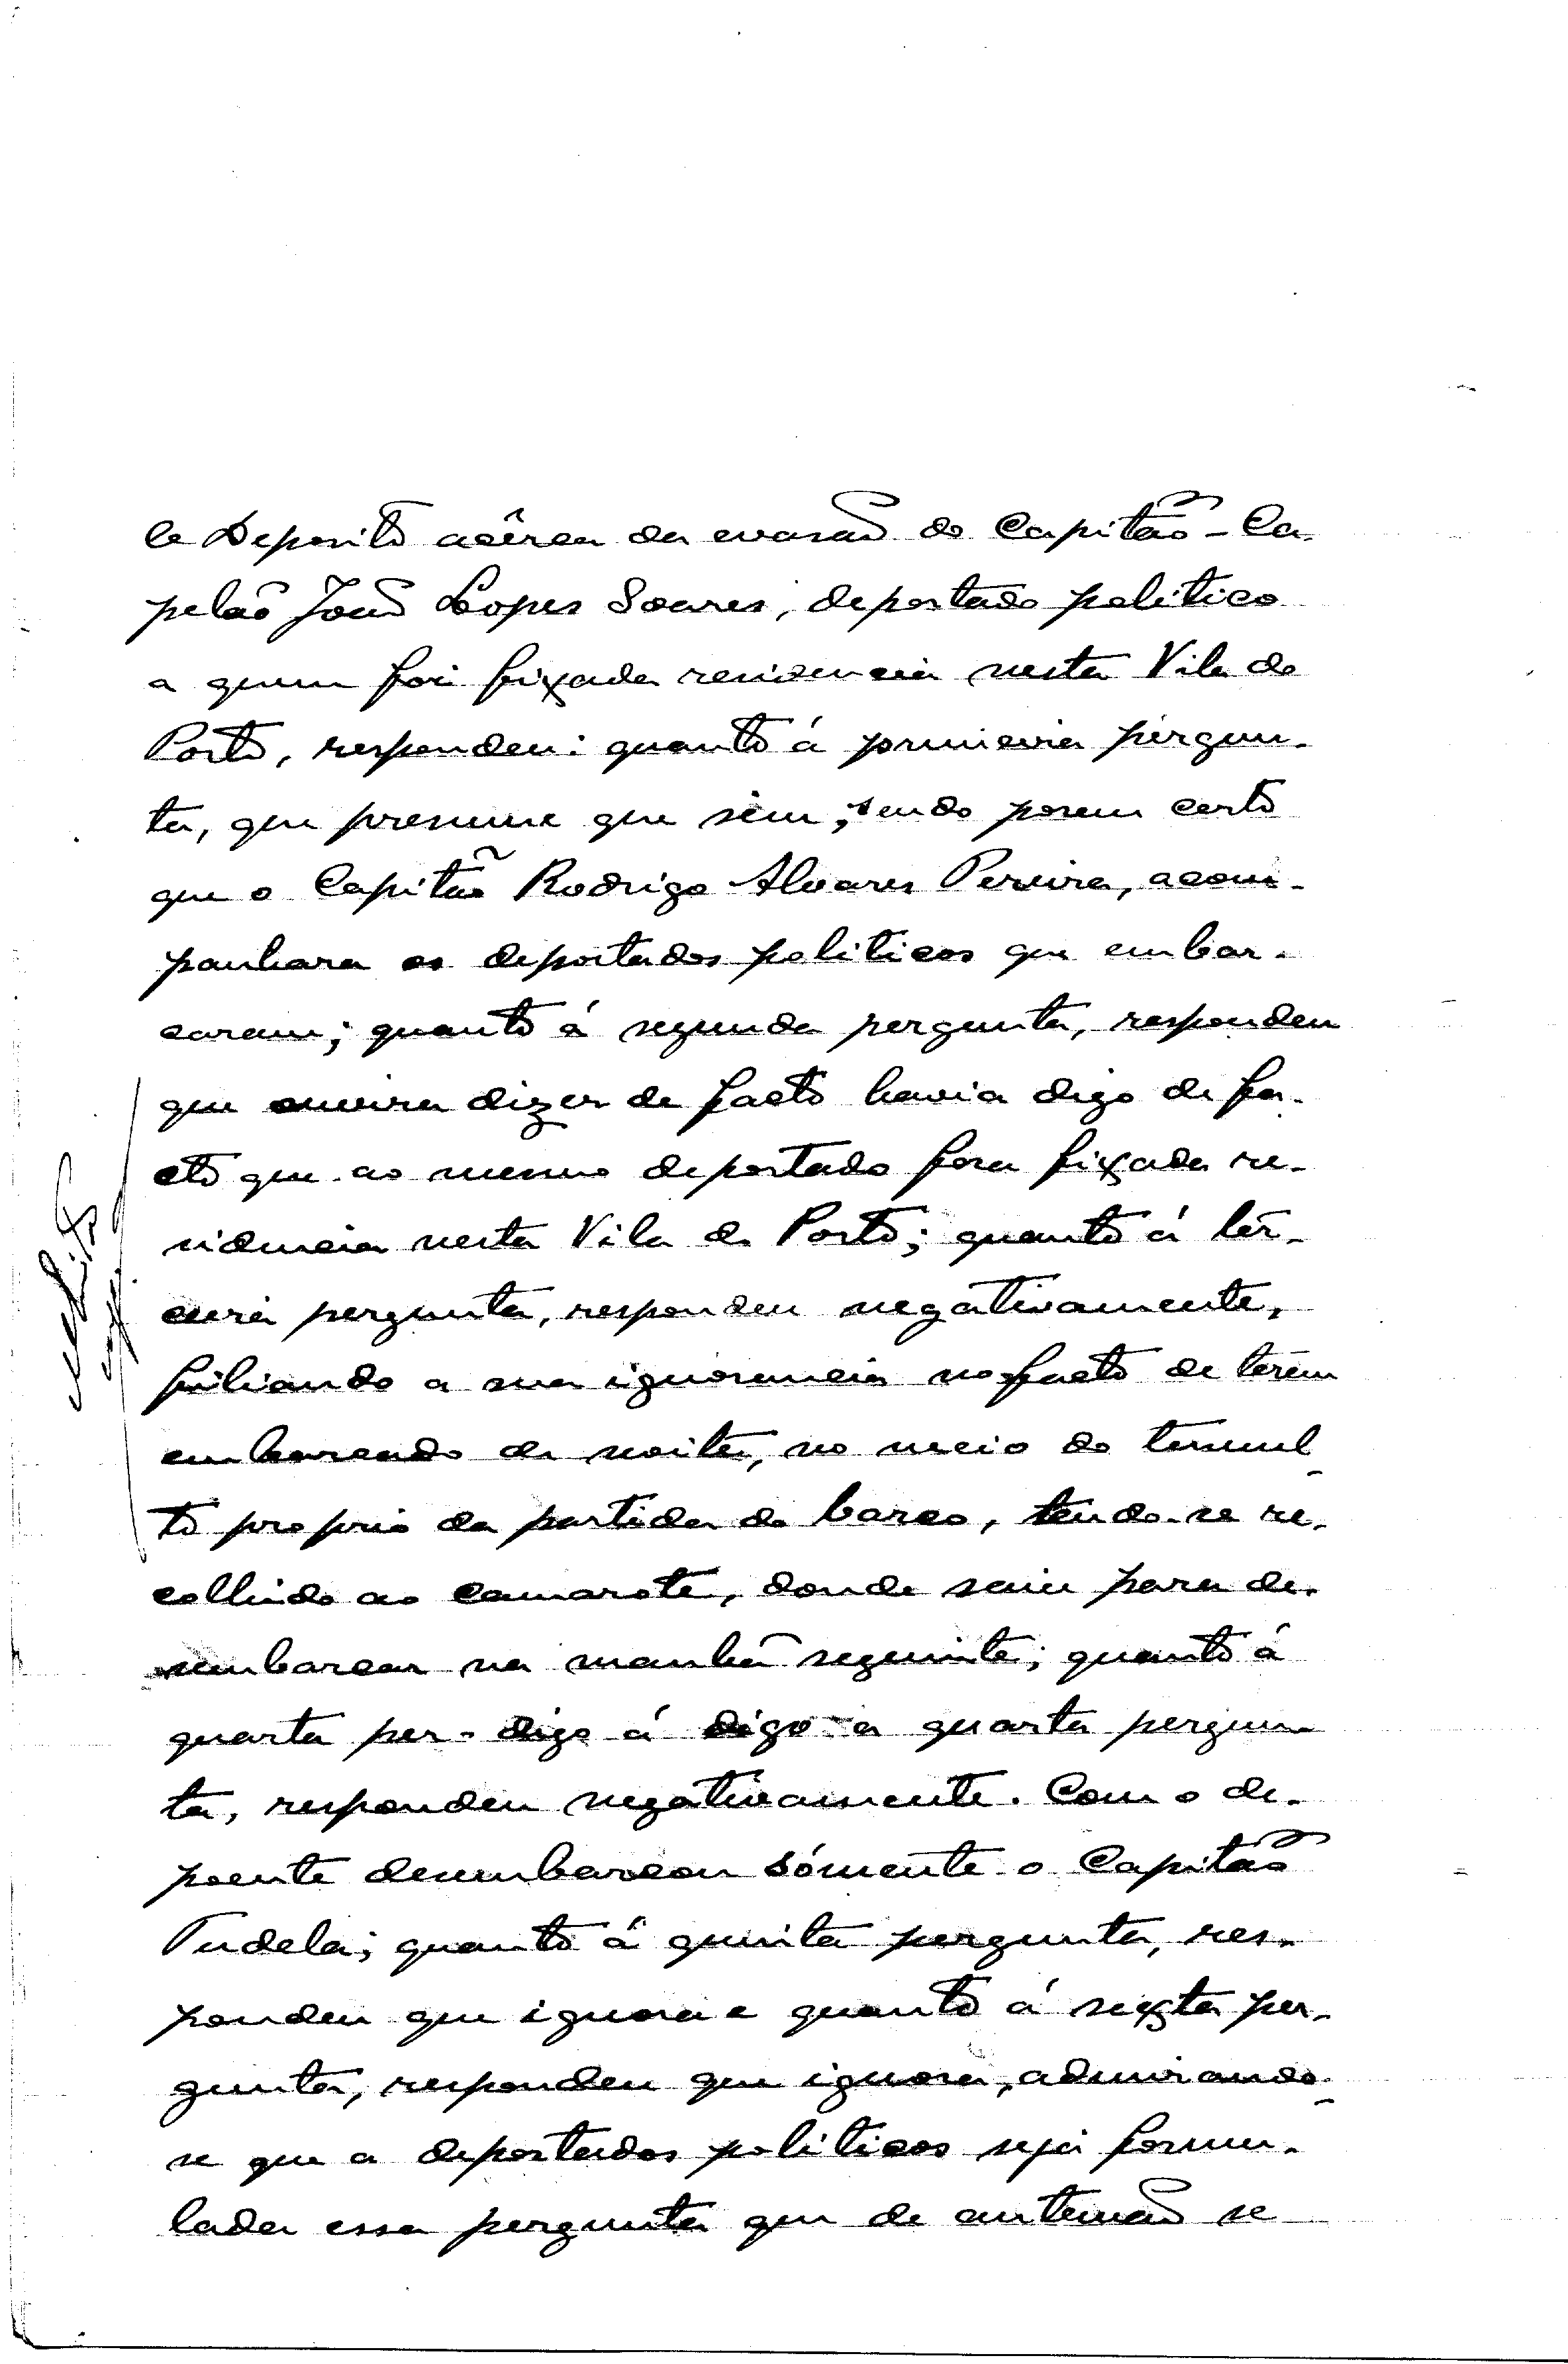 le Deposito acêrca da evasão do Capitão-Ca-
pelão João Lopes Soares, deportado politico
a quem foi fixada residencia nesta Vila do
Porto, respondeu: quanto á primeira pergun-
ta, que presume que sim, sendo porem certo
que o Capitão Rodrigo Alvares Pereira, acom-
panhara os deportados politicos que embar-
caram; quanto á segunda pergunta, respondeu
que ouvira dizer de facto havia digo de fa-
cto que ao mesmo deportado fora fixada re-
sidencia nesta Vila do Porto; quanto á têr-
ceira pergunta, respondeu negativamente,
filiando a sua ignorancia no facto de terem
embarcado de noite, no meio do tumul-
to proprio da partida do barco, tendo-se re-
colhido ao camarote, donde saiu para de-
sembarcar na manhã seguinte; quanto á
quarta per- digo á digo a quarta pergun-
ta, respondeu negativamente. Com o de-
poente desembarcou sómente o Capitão
Tudela; quanto á quinta pergunta, res-
pondeu que ignora e quanto á sexta per-
gunta, respondeu que ignora, admirando-
se que a deportados politicos seja formu-
lada essa pergunta que de antemão se